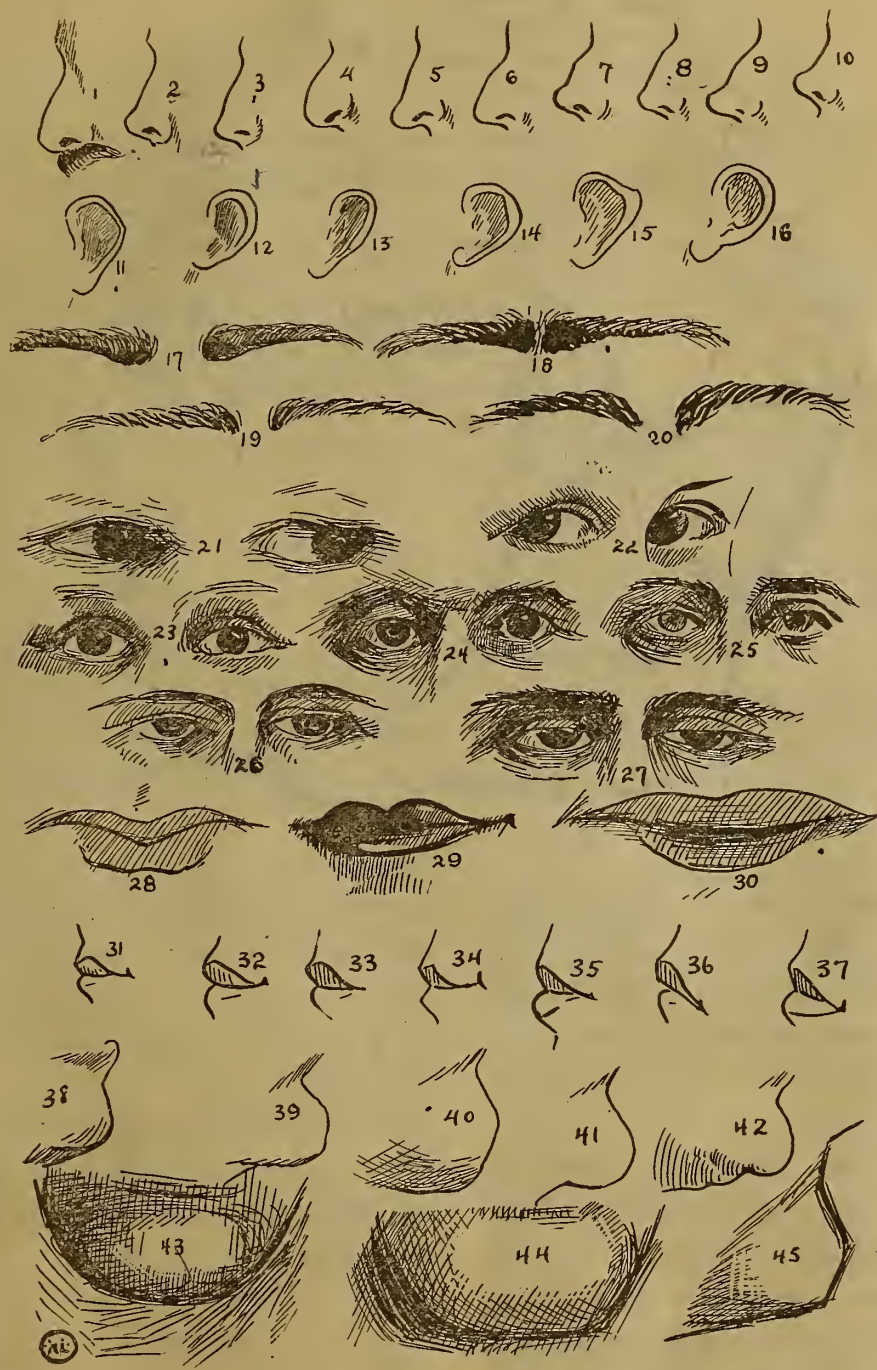 1 2 3 4 5 6 7 8 9 10
11 12 13 14 15 16
17 18
19 20
21 22
23 24 25
26 27
28 29 30
31 32 33 34 35 36 37
38 39 40 41 42
43 44 45